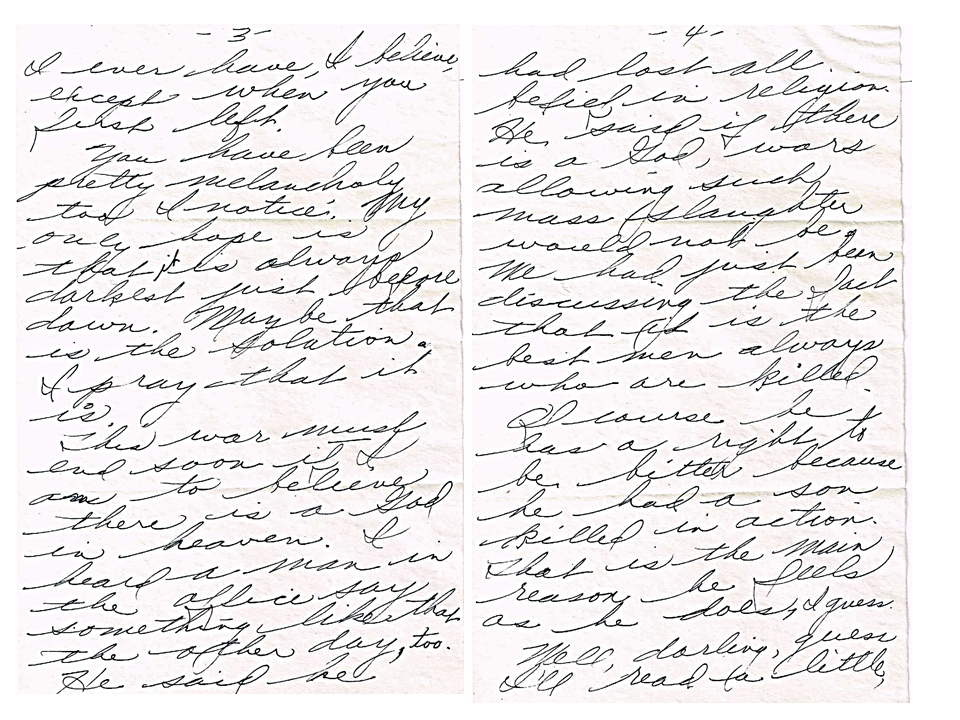 -3-
I ever have, I believe,
except when you
first left.
You have been
pretty melancholy
too I notice. My
only hope is
that it is always
darkest just before
dawn. Maybe that
is the solution.
I pray that it
is.
This war must
end soon if I
am to believe
there is a God
in heaven. I
heard a man in
the office say
something like that
the other day, too.
He said he
-4-
had lost all
belief in religion.
He said if there
is a God, wars
allowing such
mass slaughter
would not be.
We had just been
discussing the fact
that it is the
best men always
who are killed.
Of course he
has a right to
be bitter because
he had a son
killed in action.
That is the main
reason he feels
as he does, I guess.
Well, darling, guess
I'll read a little,